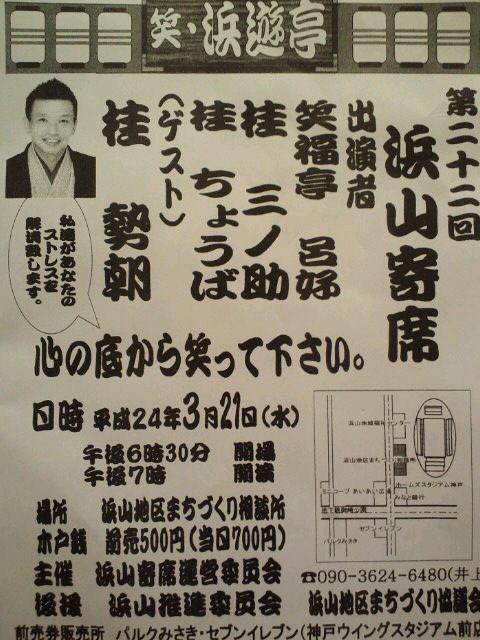 笑・浜遊亭
第二十二回
浜山寄席
出演者
笑福亭 呂好
桂 三ノ助
桂 ちょうば
(ゲスト)
桂 勢朝
私達があなたの
ストレスを
解消致します。
心の底から笑って下さい。
日時 平成24年3月21日(水)
午後6時30分 開場
午後7時 開演
場所 浜山地区まちづくり相談所
木戸銭 前売500円(当日700円)
主催 浜山寄席運営委員会
後援 浜山推進委員会 浜山地区まちづくり協議会
前売券販売所 パルクみさき・セブンイレブン(神戸ウイングスタジアム前店
浜山地域福祉センター
浜山地区まちづくり相談所
ホームズスタジアム神戸
ミニコープ あいあい広場
みなと銀行
地下鉄御崎公園
セブンイレブン
パルクみさき
☎090-3624-6480(井上